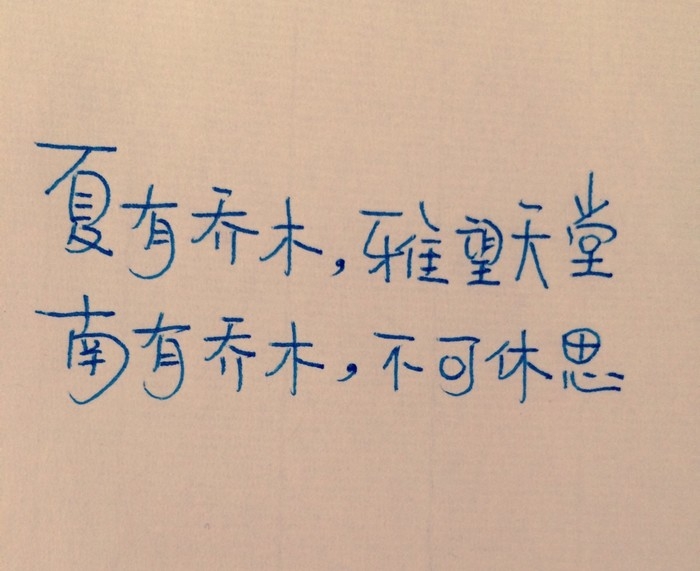 夏有乔木,雅望天堂
南有乔木,不可休思